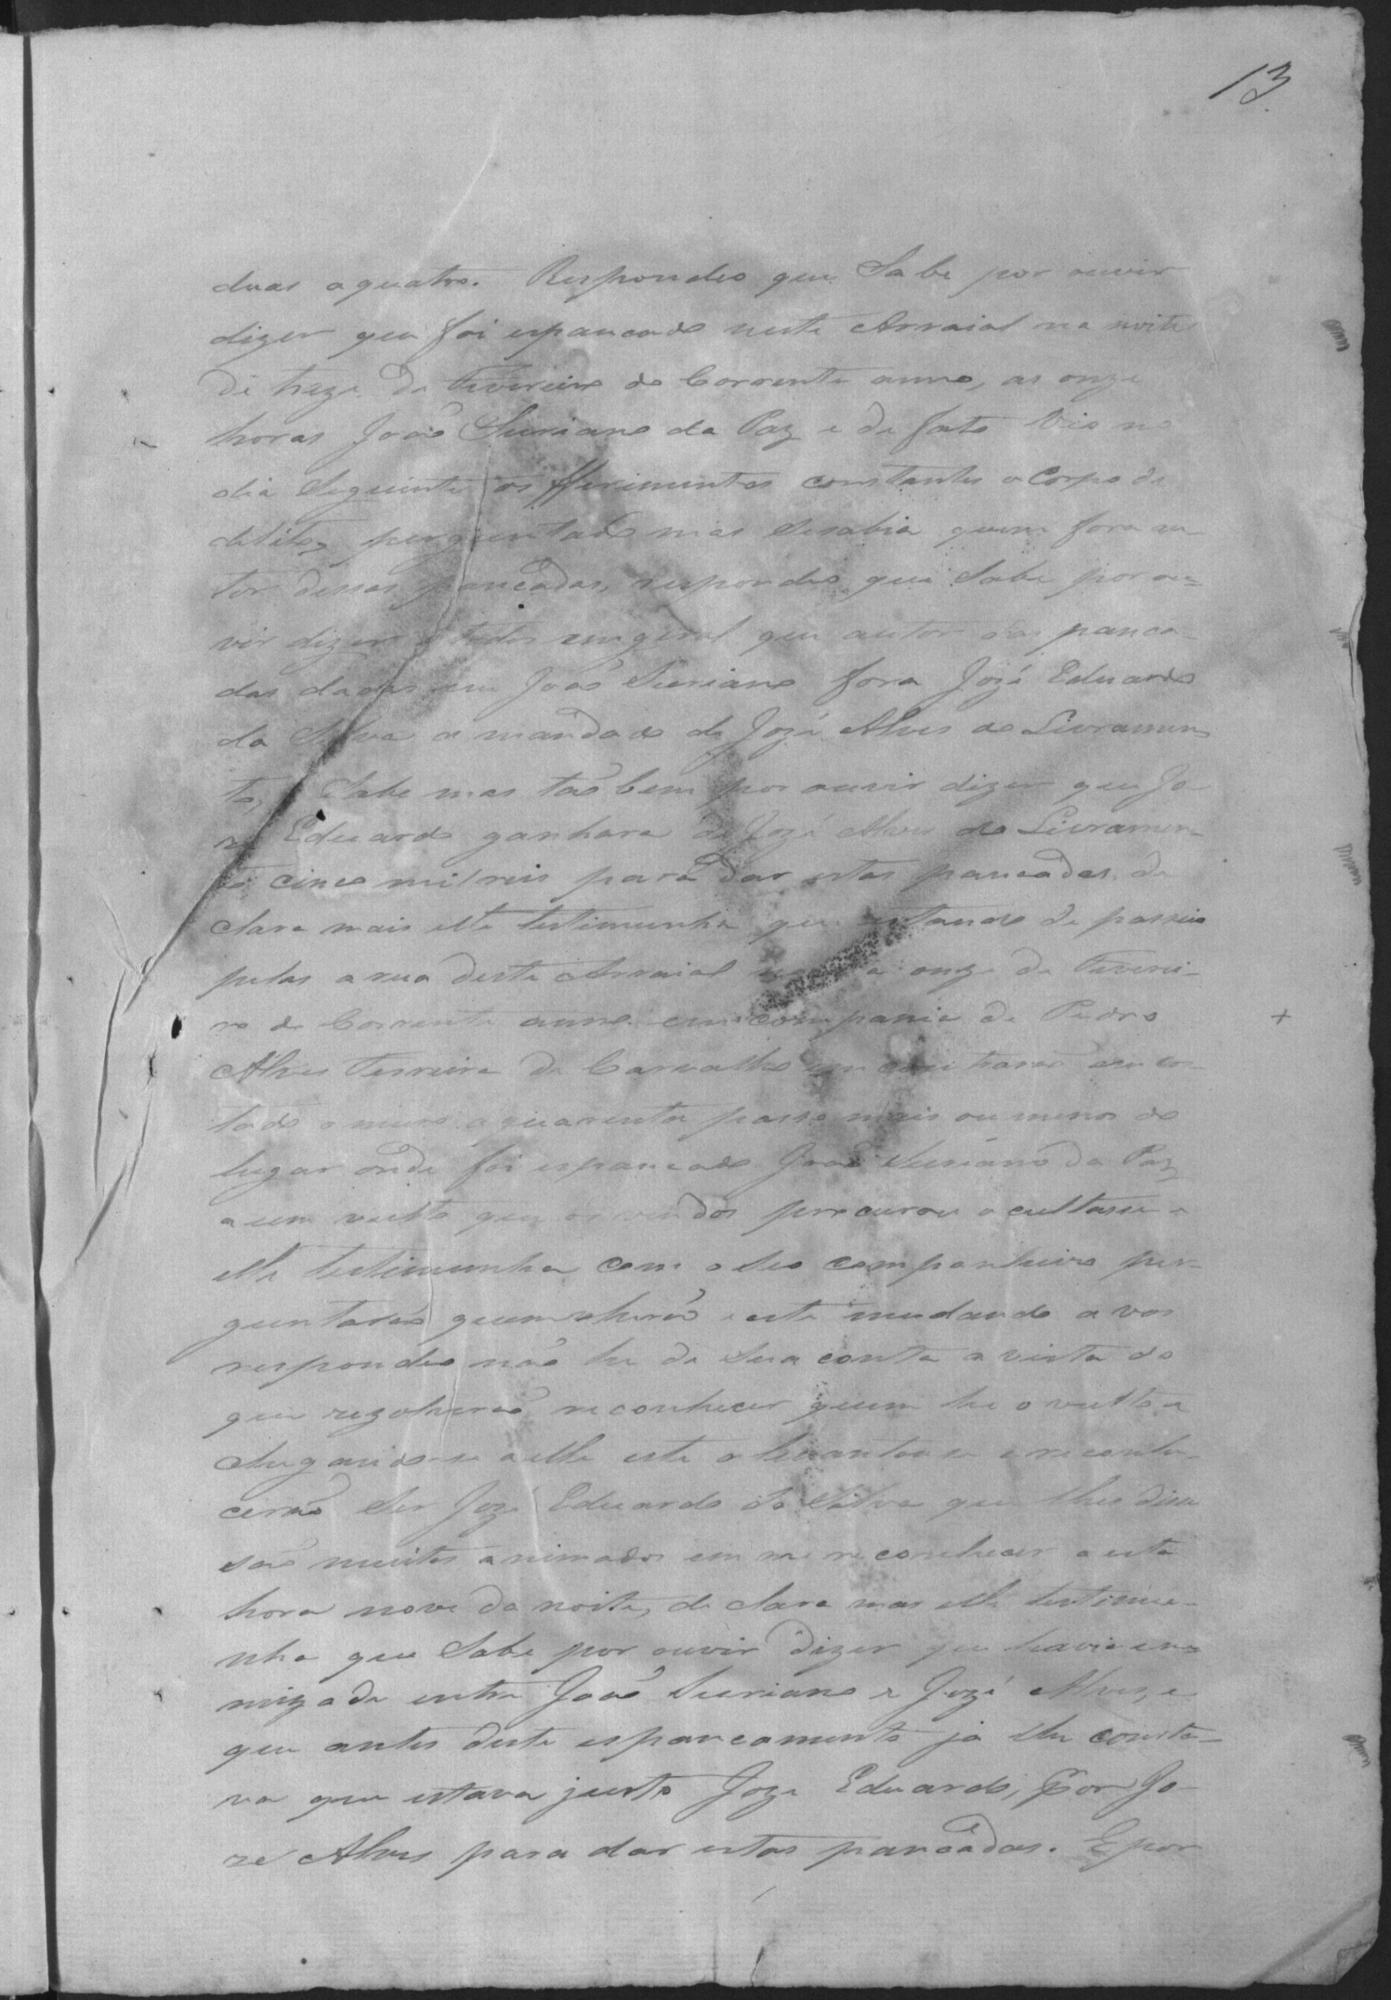 13
duas a quatro. Respondeo que Sabe por ouvir
dizer que foi espancado neste Arraial na noite
de treze de Fevereiro do Corrente anno, as onze
horas João Suriano da Paz e de fato Vio no
dia Seguinte os fferimentos constantes o Corpo de
delito, perguntado mas Sesabia quem fora au-
tor dessas pancadas, respondeo que Sabe por ou=
vir dizer a todos emgeral que autor das panca-
das dadas em João Suriano fora Jozé Eduardo
da Silva a mandado de Jozé Alves do Livramen
to, Sabe mas tão bem por ouvir dizer que Jo-
zé Eduardo ganhara de Jozé Alves do Livramen-
to cinco mil reis para dar estas pancadas, de
clara mais elle testimunha que estando de passeio
pelas a rua deste Arraial a onze de Feverei-
ro do Corrente anno em companie de Pedro
Alves Ferreira de Carvalho encontrarão encos-
tado o muro a quarenta passo mais ou menos do
lugar onde foi espancado João Suriano da Paz
a um vulto que os vendos procurou ocultarse e
elle testimunha com o seo companheiro per-
guntarão quem hera e este mudando a vos
respondeo não he da Sua conta a vista do
que rezolverão reconhecer quem he o vulto e
chegando-se a elle este o levantou se e reconhe-
cerão Ser Jozé Eduardo da Silva que lhes disse
são muitos animados em me reconhecer a esta
hora nove da noite, de clara mas elle testimu-
nha que Sabe por ouvir dizer que havia ini
mizade entre João Suriano e Jozé Alves, e
que antes deste espancamento ja lhe consta-
va que estava justo Joze Eduardo, por Jo-
zé Alves para dar estas pancadas. E por